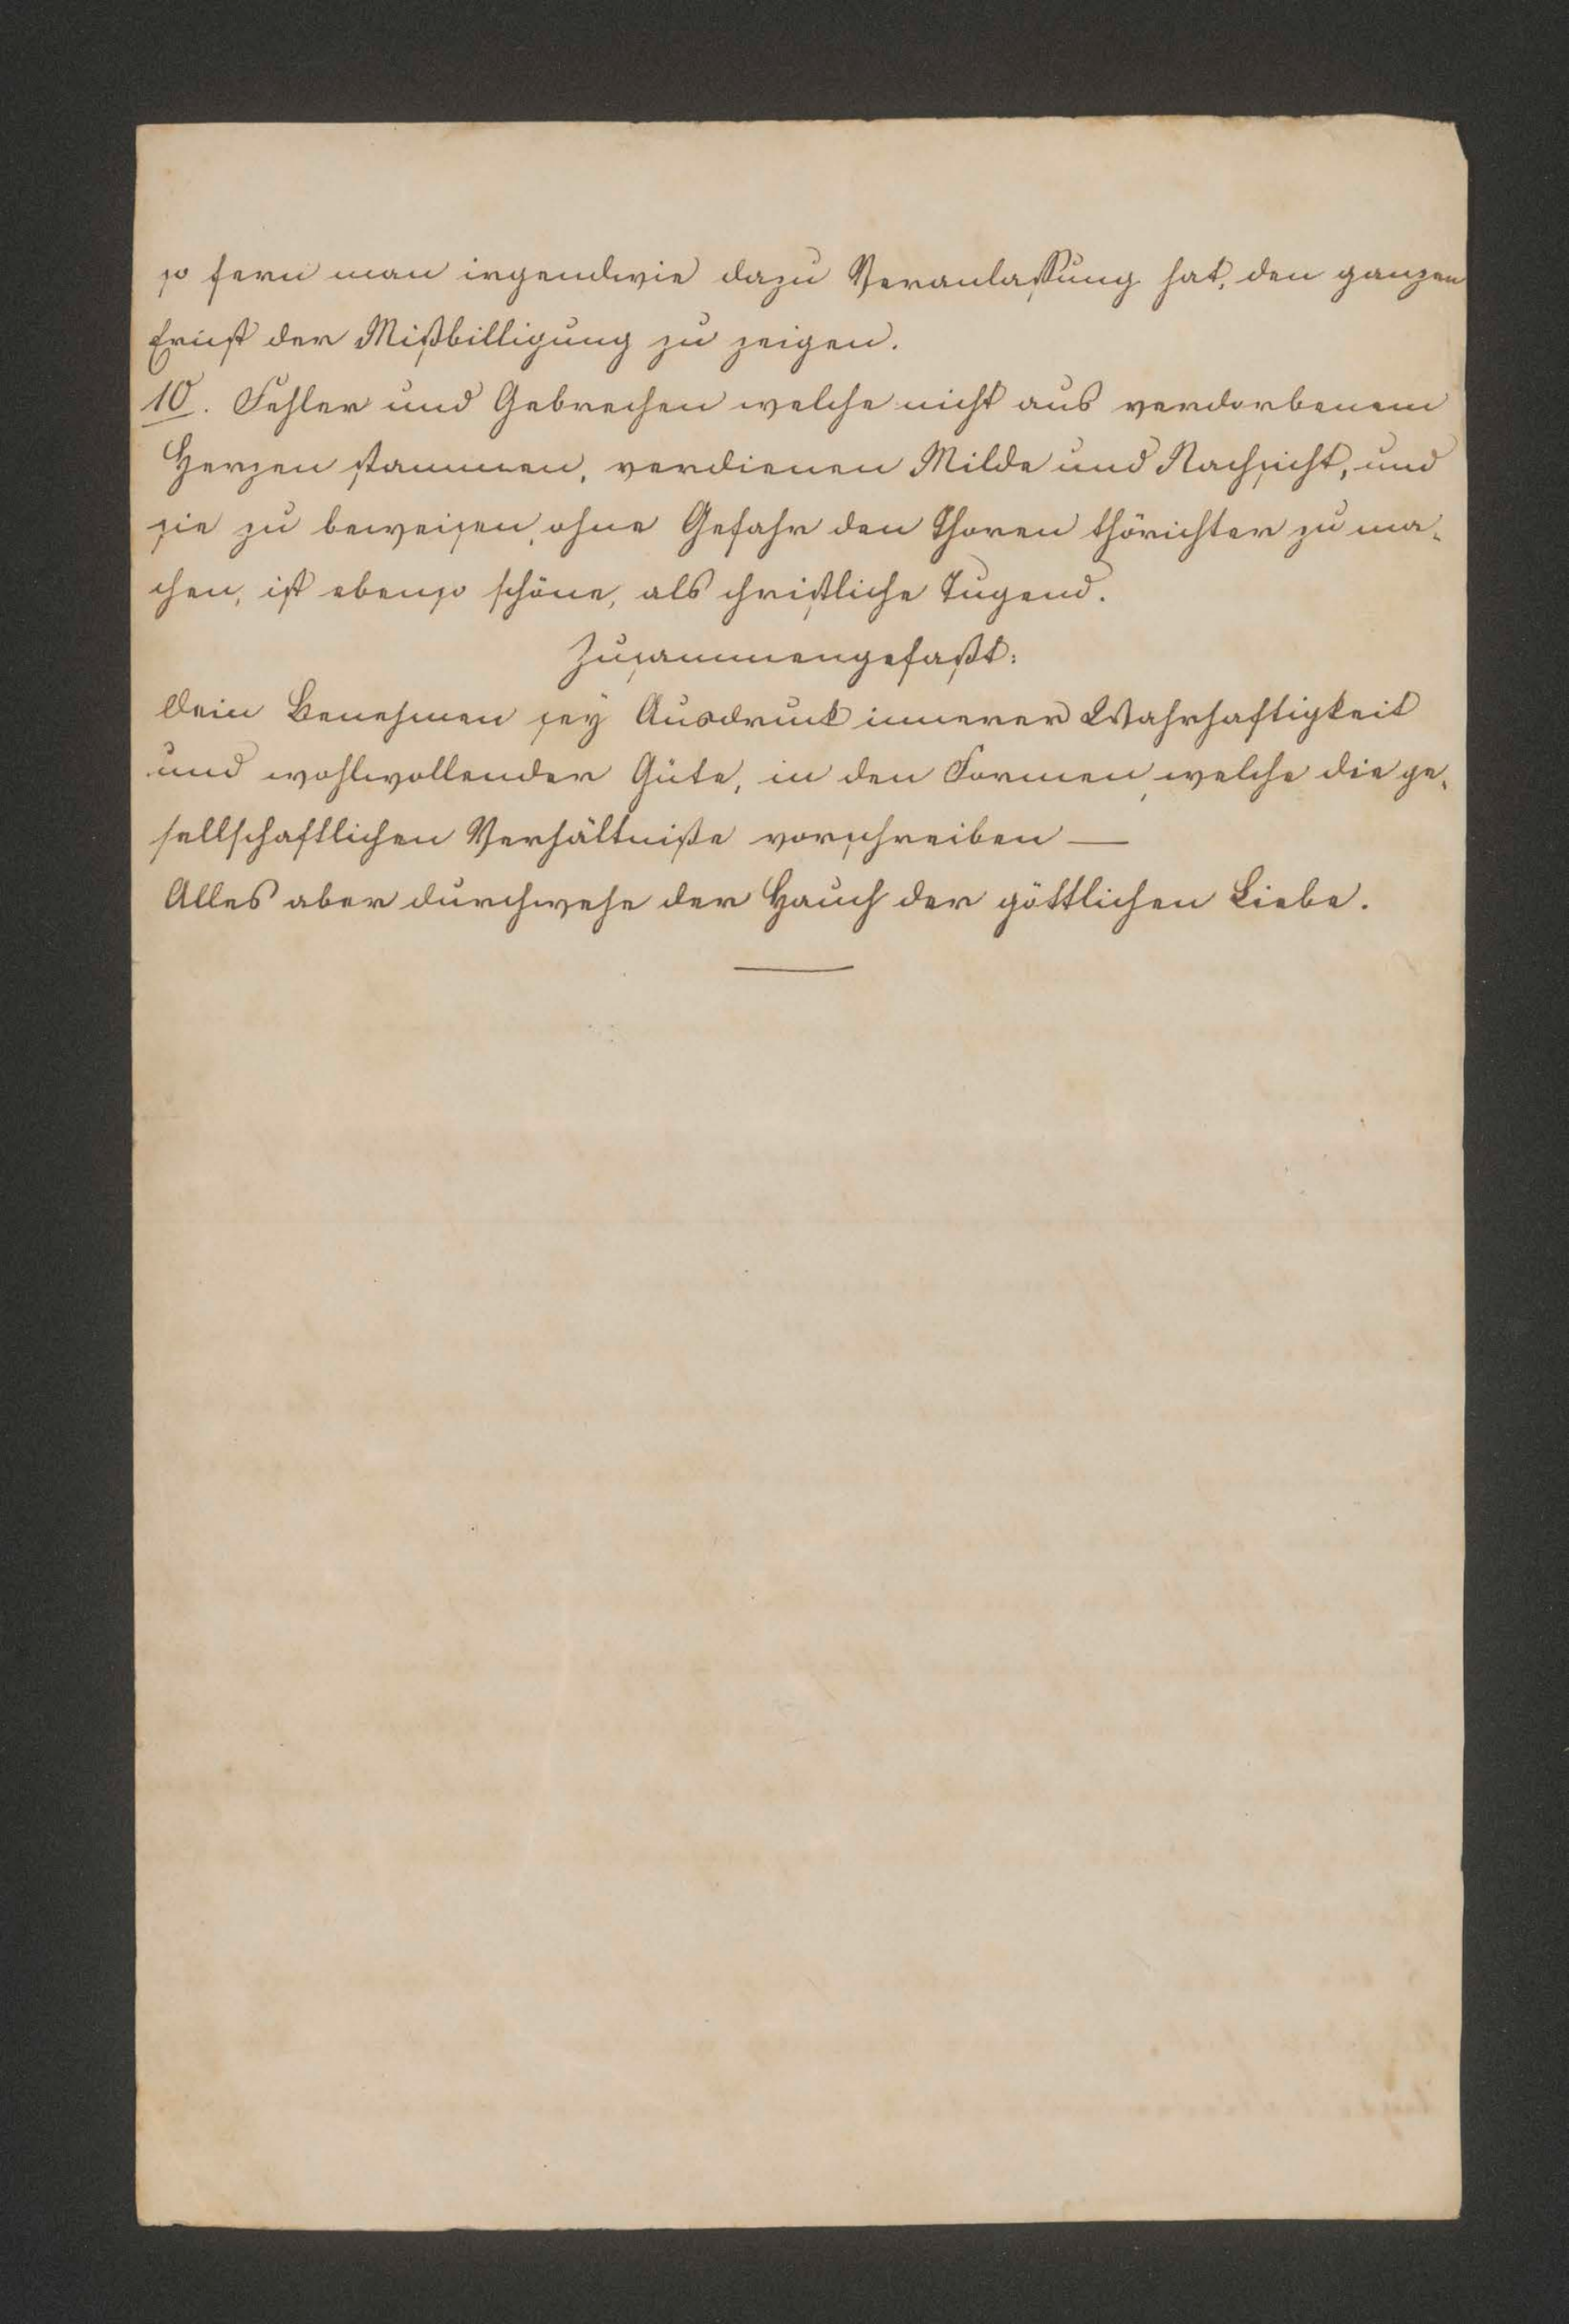 so fern man irgendwie dazu Veranlaßung hat, den ganzen
Ernst der Mißbilligung zu zeigen.
10. Fehler und Gebrechen welche nicht aus verdorbenem
Herzen stammen, verdienen Milde und Nachsicht, und
sie zu beweisen, ohne Gefahr den Thoren thörichter zu ma-
chen, ist ebenso schöne, als christliche Tugend.
Zusammengefaßt:
Dein Benehmen sey Ausdruck innerer Wahrhaftigkeit
und wohlwollender Güte, in den Formen, welche die ge-
sellschaftlichen Verhältniße vorschreiben —
Alles aber durchwehe der Hauch der göttlichen Liebe.